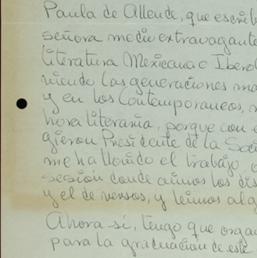 Paula de Allende, que escrib
señora medio extravagante
literatura Mexicana e Ibero
niendo las generaciones ma
y en los Contemporaneos, m
hora literaria, porque con e
gieron Presidente de la So
me ha llovido el trabajo
sesión donde aimos los dis
y el de versos, y leimos alg
Ahora sí, tengo que organ
para la graduación de este